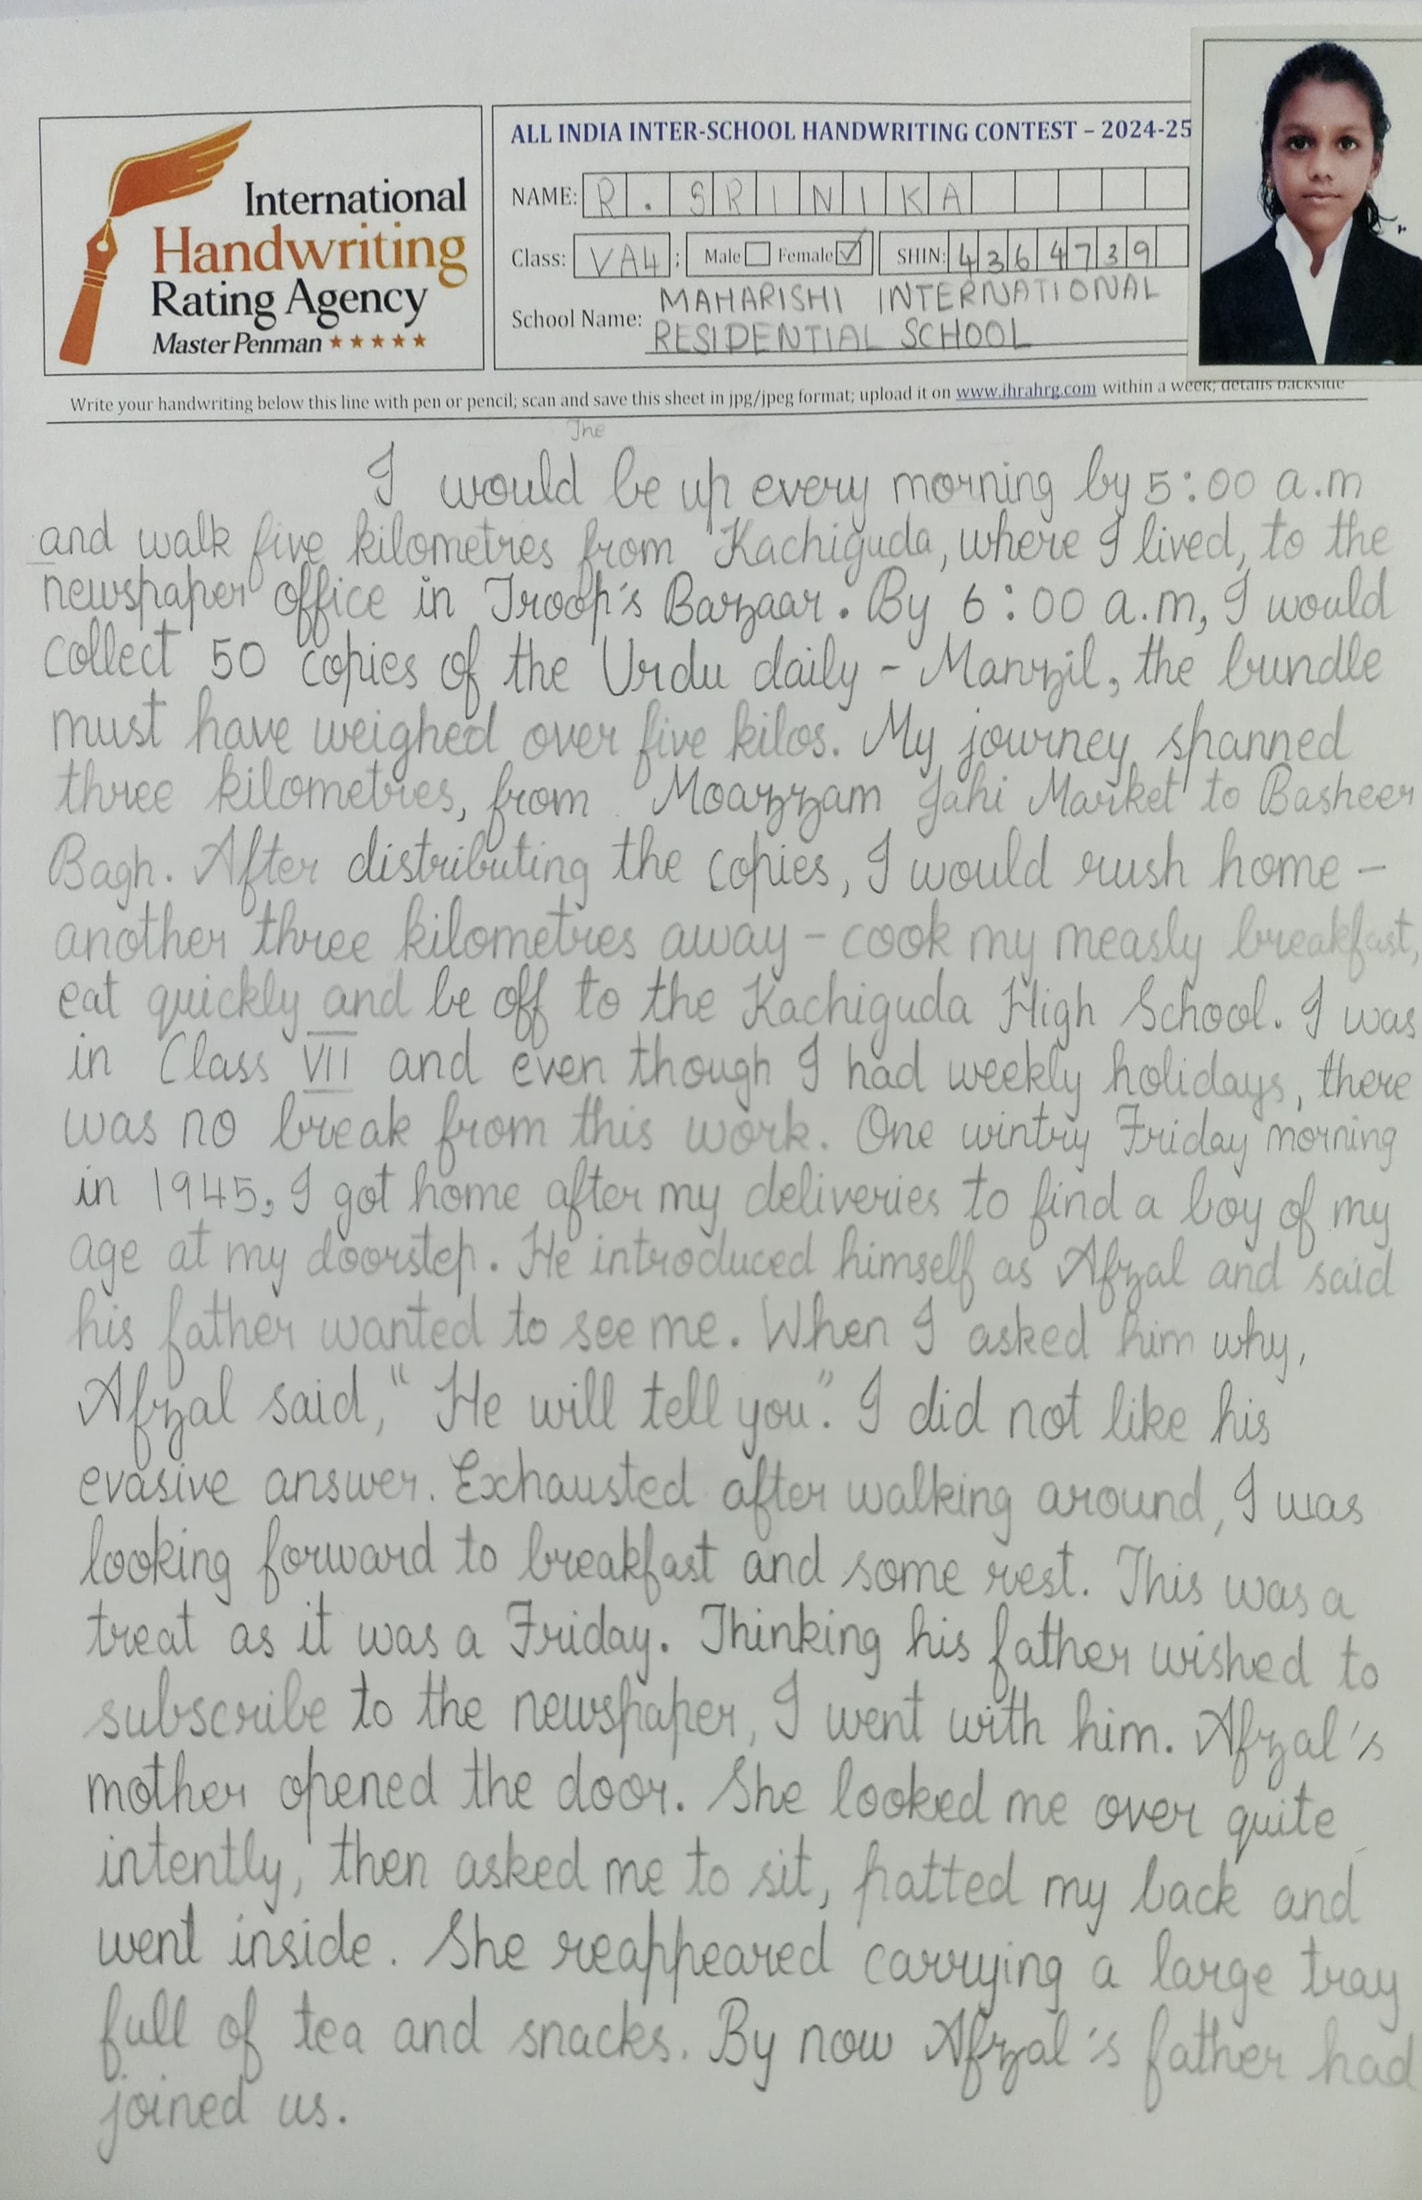 International
Handwriting
Rating Agency
Master Penman
ALL INDIA INTER-SCHOOL HANDWRITING CONTEST – 2024-25
NAME: R. SRINIKA
Class: VA4; Male Female ✓ SHIN: 4364739
School Name: MAHARISHI INTERNATIONAL
RESIDENTIAL SCHOOL
Write your handwriting below this line with pen or pencil; scan and save this sheet in jpg/jpeg format; upload it on www.ihrahrg.com within a week; details backside
The
I would be up every morning by 5:00 a.m
and walk five kilometres from Kachiguda, where I lived, to the
newspaper office in Troop's Bazaar. By 6:00 a.m, I would
collect 50 copies of the Urdu daily - Manzil, the bundle
must have weighed over five kilos. My journey spanned
three kilometres, from Moazzam Jahi Market to Basheer
Bagh. After distributing the copies, I would rush home -
another three kilometres away - cook my measly breakfast,
eat quickly and be off to the Kachiguda High School. I was
in Class VII and even though I had weekly holidays, there
was no break from this work. One wintry Friday morning
in 1945, I got home after my deliveries to find a boy of my
age at my doorstep. He introduced himself as Afzal and said
his father wanted to see me. When I asked him why,
Afzal said, "He will tell you". I did not like his
evasive answer. Exhausted after walking around, I was
looking forward to breakfast and some rest. This was a
treat as it was a Friday. Thinking his father wished to
subscribe to the newspaper, I went with him. Afzal's
mother opened the door. She looked me over quite
intently, then asked me to sit, patted my back and
went inside. She reappeared carrying a large tray
full of tea and snacks. By now Afzal's father had
joined us.